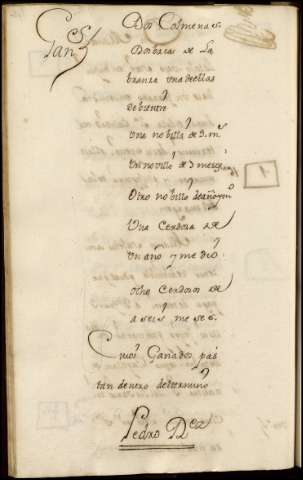 Dos Colmenas.
Dos bacas de La
branza una dellas
de bientre
Una nobilla de 3. ms
Un novillo de 3 meses
Otro nobillo de año y mº
Una Cerdosa de
un año y medio
Ocho Cerdosos de
a seis meses.
Cuios Ganados pas
tan dentro del termino
Pedro Dez